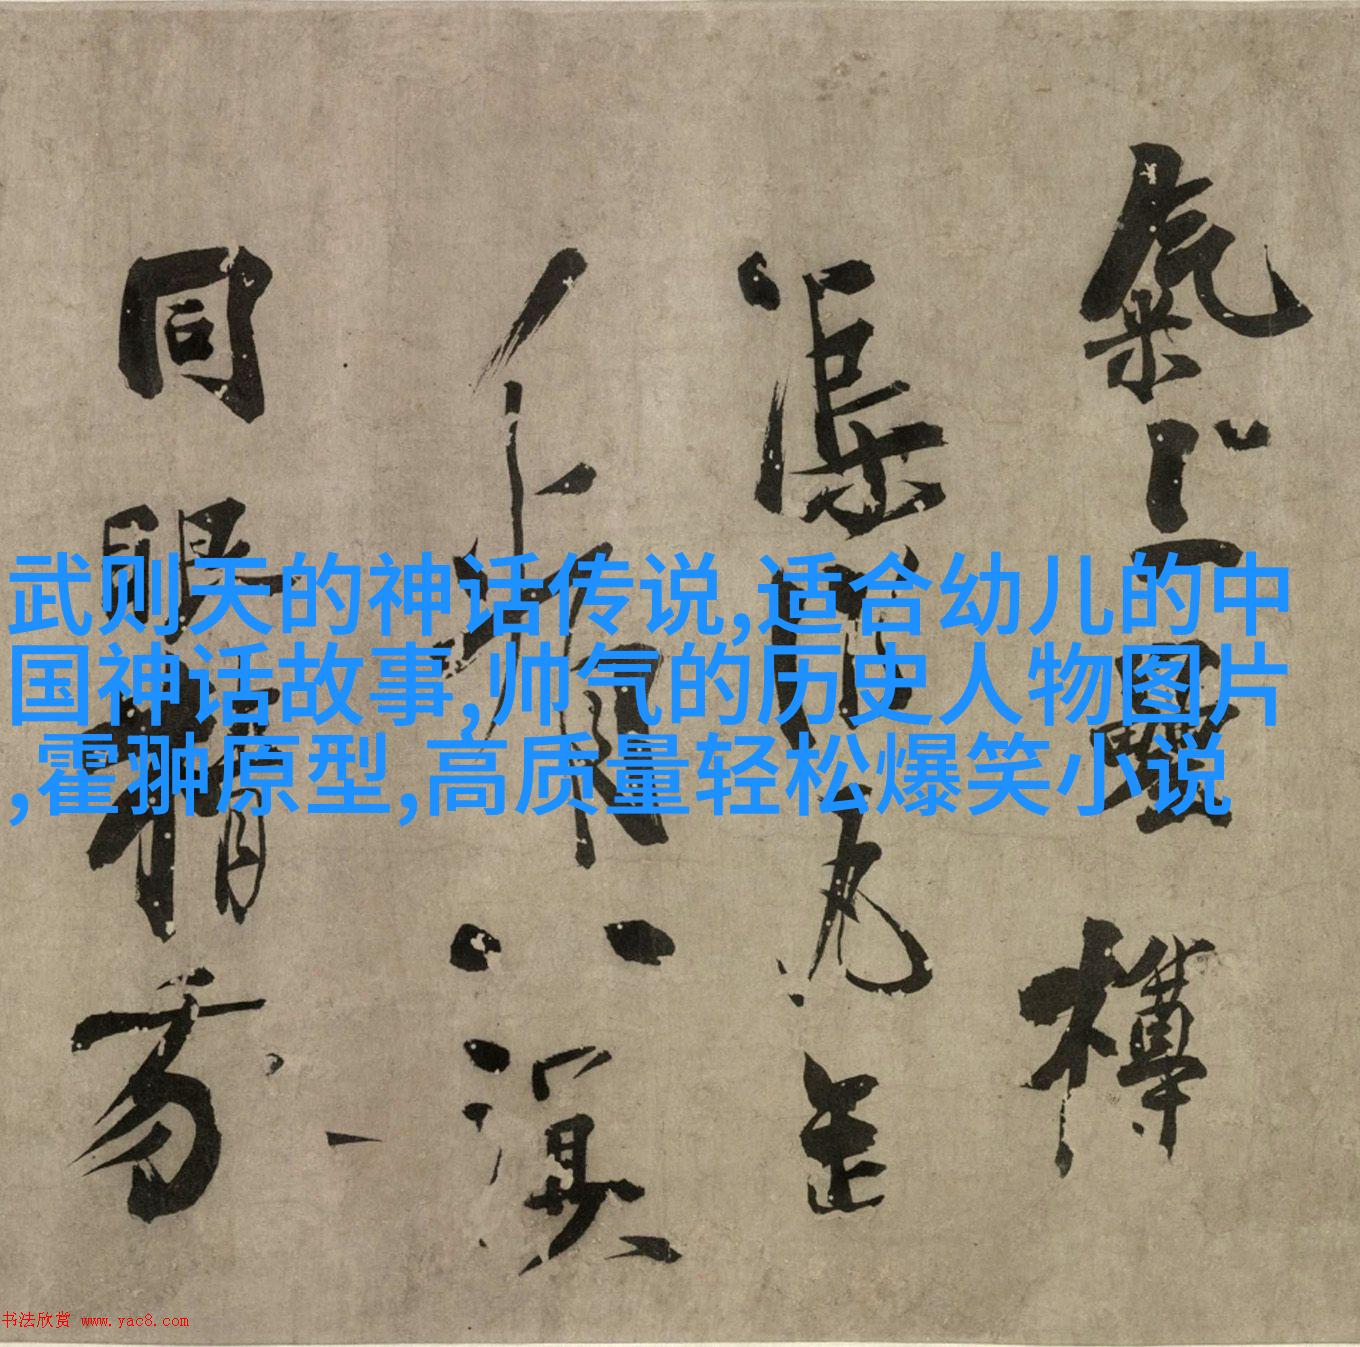 武则天的神话传说,适合幼儿的中
国神话故事,帅气的历史人物图片
,霍翀原型,高质量轻松爆笑小说
氣上
渠丸是
八溟
同眼精
书法欣赏 www.yac8.com